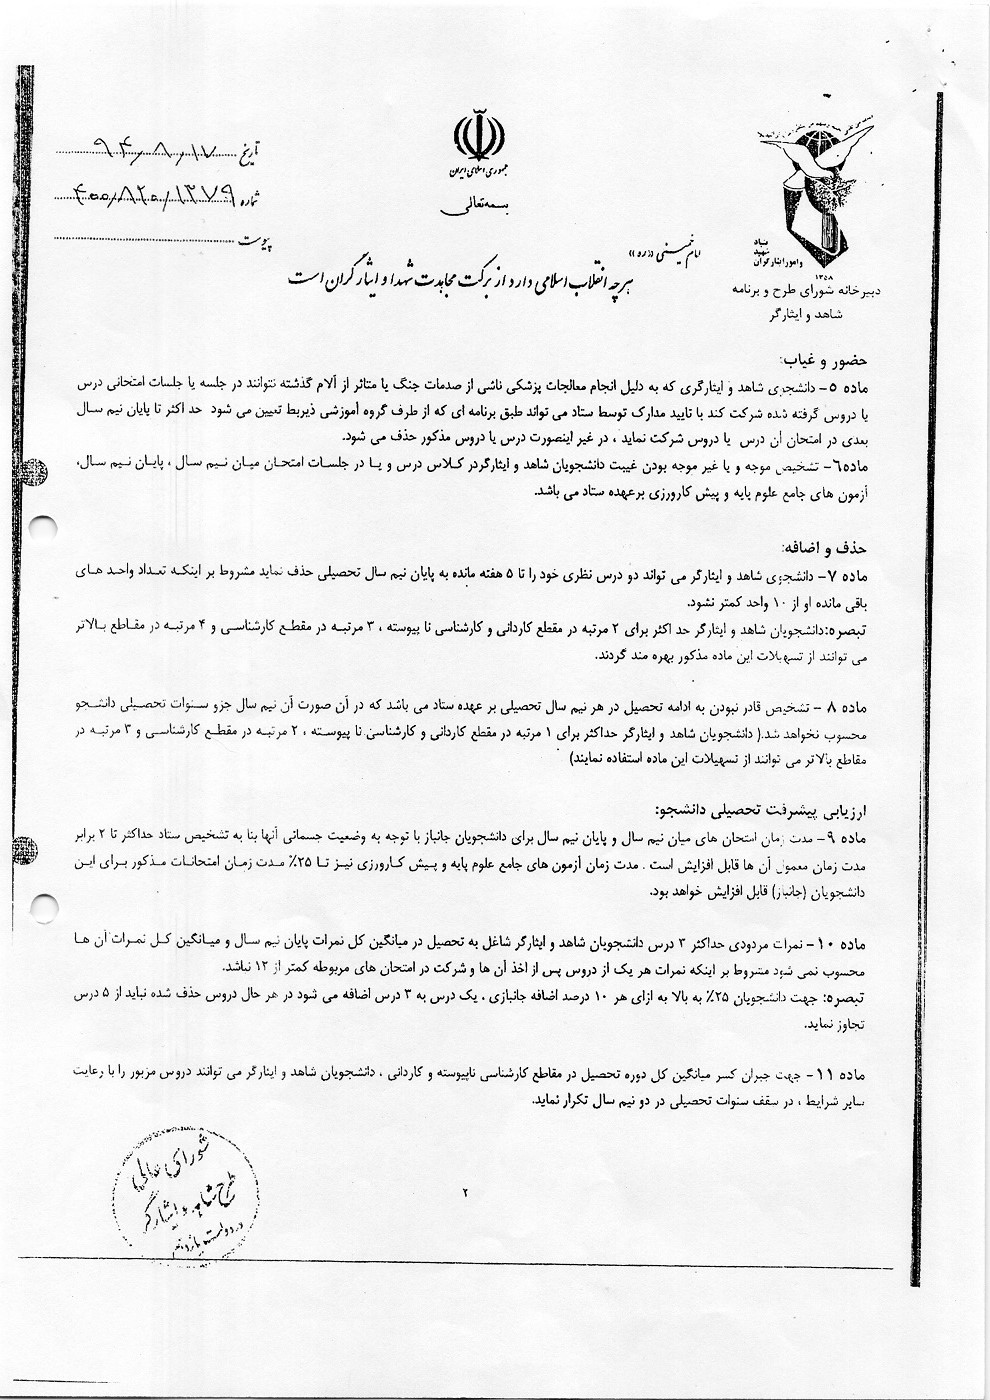 تاریخ ۹۴/۸/۱۷
شماره ۴۰۰/۸۲۰/۱۳۷۹
پیوست
جمهوری اسلامی ایران
بسمه تعالی
بنیاد
شهید
و امور ایثارگران
۱۳۵۸
دبیرخانه شورای طرح و برنامه
شاهد و ایثارگر
امام خمینی «ره»
هرچه انقلاب اسلامی دارد از برکت مجاهدت شهدا و ایثارگران است
حضور و غیاب:
ماده ۵- دانشجوی شاهد و ایثارگری که به دلیل انجام معالجات پزشکی ناشی از صدمات جنگ یا متاثر از آلام گذشته نتوانند در جلسه یا جلسات امتحانی درس
یا دروس گرفته شده شرکت کند با تایید مدارک توسط ستاد می تواند طبق برنامه ای که از طرف گروه آموزشی ذیربط تعیین می شود حد اکثر تا پایان نیم سال
بعدی در امتحان آن درس یا دروس شرکت نماید ، در غیر اینصورت درس یا دروس مذکور حذف می شود.
ماده۶- تشخیص موجه و یا غیر موجه بودن غیبت دانشجویان شاهد و ایثارگردر کلاس درس و یا در جلسات امتحان میان نیم سال ، پایان نیم سال،
آزمون های جامع علوم پایه و پیش کارورزی برعهده ستاد می باشد.
حذف و اضافه:
ماده ۷- دانشجوی شاهد و ایثارگر می تواند دو درس نظری خود را تا ۵ هفته مانده به پایان نیم سال تحصیلی حذف نماید مشروط بر اینکه تعداد واحد های
باقی مانده او از ۱۰ واحد کمتر نشود.
تبصره:دانشجویان شاهد و ایثارگر حد اکثر برای ۲ مرتبه در مقطع کاردانی و کارشناسی نا پیوسته ، ۳ مرتبه در مقطع کارشناسی و ۴ مرتبه در مقاطع بالاتر
می توانند از تسهیلات این ماده مذکور بهره مند گردند.
ماده ۸ - تشخیص قادر نبودن به ادامه تحصیل در هر نیم سال تحصیلی بر عهده ستاد می باشد که در آن صورت آن نیم سال جزو سنوات تحصیلی دانشجو
محسوب نخواهد شد.( دانشجویان شاهد و ایثارگر حداکثر برای ۱ مرتبه در مقطع کاردانی و کارشناسی نا پیوسته ، ۲ مرتبه در مقطع کارشناسی و ۳ مرتبه در
مقاطع بالاتر می توانند از تسهیلات این ماده استفاده نمایند)
ارزیابی پیشرفت تحصیلی دانشجو:
ماده ۹- مدت زمان امتحان های میان نیم سال و پایان نیم سال برای دانشجویان جانباز با توجه به وضعیت جسمانی آنها بنا به تشخیص ستاد حداکثر تا ۲ برابر
مدت زمان معمول آن ها قابل افزایش است . مدت زمان آزمون های جامع علوم پایه و پیش کارورزی نیز تا ۲۵٪ مدت زمان امتحانات مذکور برای این
دانشجویان (جانباز) قابل افزایش خواهد بود.
ماده ۱۰- نمرات مردودی حداکثر ۳ درس دانشجویان شاهد و ایثارگر شاغل به تحصیل در میانگین کل نمرات پایان نیم سال و میانگین کل نمرات آن ها
محسوب نمی شود مشروط بر اینکه نمرات هر یک از دروس پس از اخذ آن ها و شرکت در امتحان های مربوطه کمتر از ۱۲ نباشد.
تبصره: جهت دانشجویان ۲۵٪ به بالا به ازای هر ۱۰ درصد اضافه جانبازی ، یک درس به ۳ درس اضافه می شود در هر حال دروس حذف شده نباید از ۵ درس
تجاوز نماید.
ماده ۱۱- جهت جبران کسر میانگین کل دوره تحصیل در مقاطع کارشناسی ناپیوسته و کاردانی ، دانشجویان شاهد و ایثارگر می توانند دروس مزبور را با رعایت
سایر شرایط ، در سقف سنوات تحصیلی در دو نیم سال تکرار نماید.
شورای عالی
طرح شاهد و ایثارگر
۲